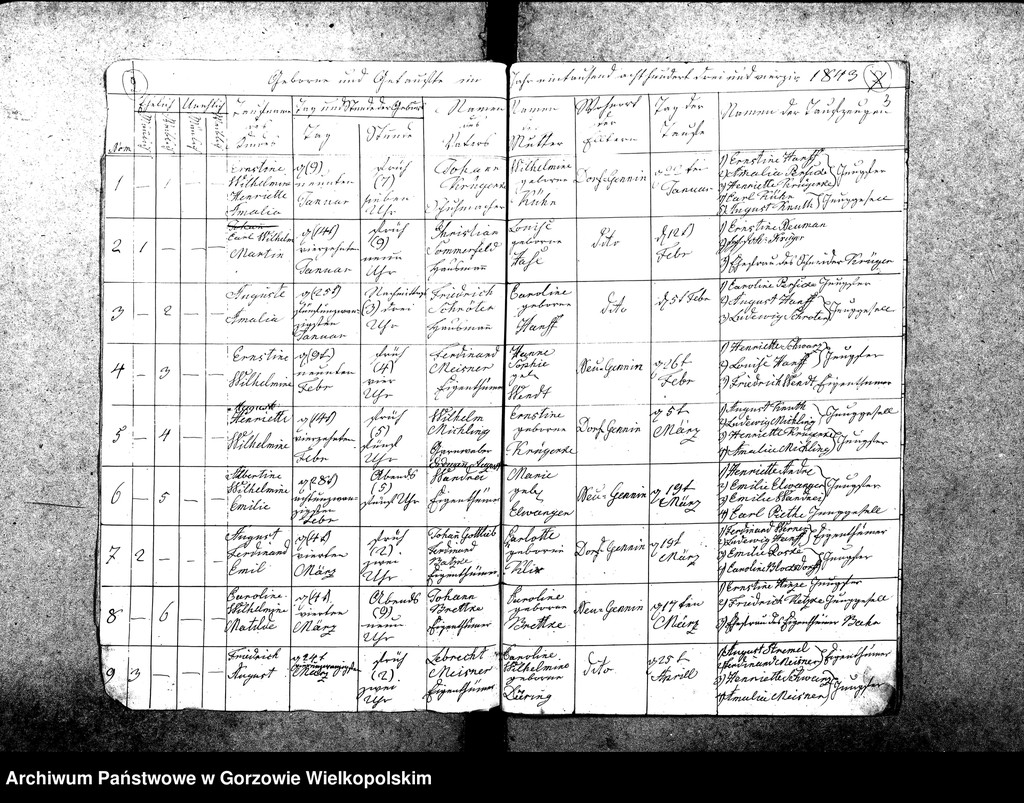 9
Geborne und Getaufte im Jahr eintausend acht hundert drei und vierzig 1843
3
Ehelich Unehelich Taufname des Kindes Tag und Stunde der Geburt Namen des Vaters Namen der Mutter Wohnort der Eltern Tag der Taufe Namen der Taufzeugen
Num Tag Stunde
1 – 1 – –
Ernstine
Wilhelmine
Henriette
Amalia
d 9
neunten
Januar
Früh
(7)
sieben
Uhr
Johann
Krügerke
Wilhelmine
geborne
Kühn
Dorf Gennin
Januar
1) Ernstine Hanff
2) Amalia Persicke
3) Henriette Krügerke
Jungfer
4) Carl Kühn
5) August Knuth
Junggesell
2 1 – – –
Carl Wilhelm
Martin
d (14t)
vierzehnten
Januar
Früh
(9)
neun
Uhr
Christian
Sommerfeld
Hausmann
Louise
geborne
Hase
dito
d 12t
Febr
1) Ernstine Neuman
3) Ehefrau des Schneider Krüger
3 – 2 – –
Auguste
Amalia
d (25t)
fünfundzwan-
zigsten
Januar
Nachmittags
(3) drei
Uhr
Friedrich
Schröter
Hausmann
Caroline
geborne
Hanff
dito
d 5t Febr
1) Caroline Persicke Jungfer
2) August Hanff
3) Ludewig Schroter
Junggesell
4 – 3 – –
Ernstine
Wilhelmine
d (9t)
neunten
Febr
Früh
(4)
vier
Uhr
Ferdinand
Meisner
Eigenthümer
Hanne
Sophie
geb
Wendt
Neu Gennin
d 26t
Febr
1) Henriette Schwarz
2) Louise Hanff
Jungfer
3) Friedrich Wendt Eigenthümer
5 – 4 – –
Henriette
Wilhelmine
d (14t)
vierzehnten
Febr
Früh
(5)
fünf
Uhr
Wilhelm
Michling
Ernstine
geborne
Krügerke
Dorf Gennin
d 5t
März
1) August Knuth
2) Ludewig Michling
Junggesell
3) Henriette Krügerke
4) Amalie Michling
Jungfer
6 – 5 – –
Albertine
Wilhelmine
Emilie
d (28t)
achtundzwan-
zigsten
Febr
Abends
(5)
fünf Uhr
August
Wandrei
Eigenthümer
Marie
geb
Elwanger
Neu Gennin
d 19t
März
1) Henriette Andre
2) Emilie Elwanger
3) Emilie Wandrei
Jungfer
4) Carl Piethe Junggesell
7 2 – – –
August
Ferdinand
Emil
d (4t)
vierten
März
Früh
(2)
zwei
Uhr
Johan Gottlieb
Ferdinand
Eigenthümer
Carlotte
geborne
Dorf Gennin
d 19t
März
1) Ferdinand Werner
2) Ludewig Hanff
Eigenthümer
3) Emilie Raske
4) Caroline Blocksdorff
Jungfer
8 – 6 – –
Caroline
Wilhelmine
Matilde
d (4t)
vierten
März
Abends
(9)
neun
Uhr
Johann
Brettke
Eigenthümer
Caroline
geborne
Brettke
Neu Gennin
d 17ten
März
1) Ernstine Hinze Jungfer
2) Friedrich Junggesell
3) Ehefrau des Eigenthümer
9 3 – – –
Friedrich
August
d 24t
März
Früh
(2)
zwei
Uhr
Lebrecht
Meisner
Eigenthümer
Caroline
Wilhelmine
geborne
Düring
dito
d 25t
Aprill
1) August Stremel
2) Ferdinand Meisner
Eigenthümer
3) Henriette Schwarz
4) Amalia Meisner
Jungfer
Archiwum Państwowe w Gorzowie Wielkopolskim